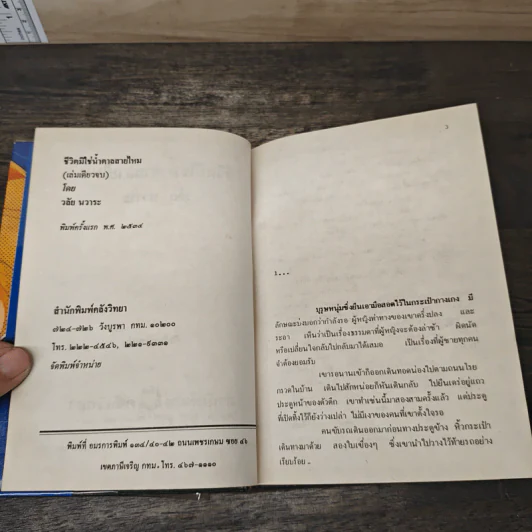 ชีวิตมิใช่น้ำตาลสายไหม
(เล่มเดียวจบ)
โดย
วลัย นวาระ
พิมพ์ครั้งแรก พ.ศ. ๒๕๓๔
สำนักพิมพ์คลังวิทยา
๗๒๔-๗๒๖ วังบูรพา กทม. ๑๐๒๐๐
โทร. ๒๒๒-๔๕๔๖, ๒๒๑-๙๓๓๑
จัดพิมพ์จำหน่าย
พิมพ์ที่ อมรการพิมพ์ ๑๓๔/๔๐-๔๒ ถนนเพชรเกษม ซอย ๔๖
เขตภาษีเจริญ กทม. โทร. ๔๖๗-๑๑๑๐
๑...
บุรุษหนุ่มซึ่งยืนเอามือสอดไว้ในกระเป๋ากางเกง มี
ลักษณะบ่งบอกว่ากำลังรอ ผู้หญิงท่าทางของเขาครึ่งปลง และ
ระอา เห็นว่าเป็นเรื่องธรรมดาที่ผู้หญิงจะต้องล่าช้า ผิดนัด
หรือเปลี่ยนใจกลับไปกลับมาได้เสมอ เป็นเรื่องที่ผู้ชายทุกคน
จำต้องยอมรับ
เขารอนานเข้าก็ออกเดินทอดน่องไปตามถนนโรย
กรวดในบ้าน เดินไปสักหน่อยก็หันเดินกลับ ไปยืนเตร่อยู่แถว
ประตูหน้าของตัวตึก เขาทำเช่นนี้มาสองสามครั้งแล้ว แต่ประตู
ที่เปิดทิ้งไว้ก็ยังว่างเปล่า ไม่มีเงาของคนที่เขาตั้งใจรอ
คนขับรถเดินออกมาก่อนทางประตูข้าง หิ้วกระเป๋า
เดินทางมาด้วย สองใบเขื่องๆ ซึ่งเขานำไปวางไว้ท้ายรถอย่าง
เรียบร้อย.